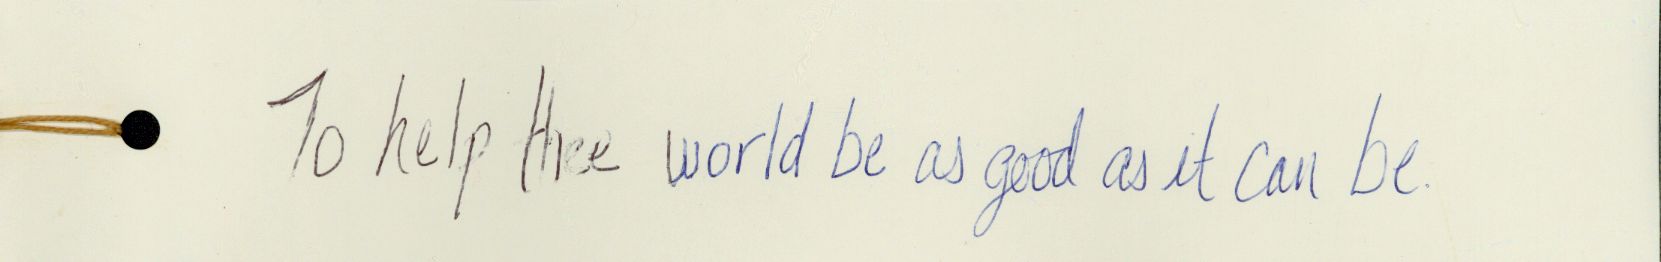 To help thee world be as good as it can be.